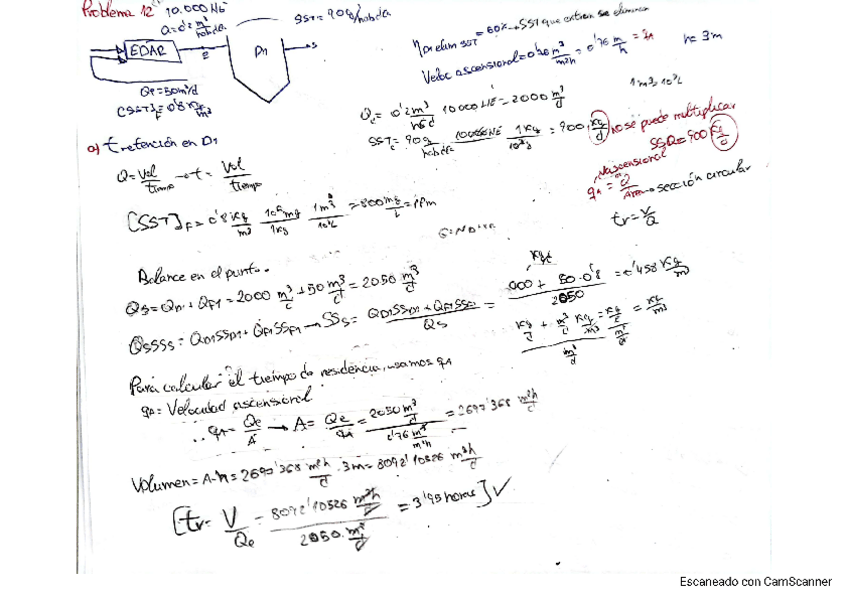 Problema 12 10.000 HE
Q=0'2 m³/hab·d
SST=90g/hab·da
EDAR
E
D1
S
QF=50m³/d
[SST]F=0'8 Kg/m³
ηorelim SST=60%→SST que entran se eliminan
Veloc ascensional= m³/m²h = 0'76 m/h = qA h=3m
1m³=10³L
Qe=0'2m³/hab·d 10000HE=2000 m³/d
SST=90g/hab·da 10000HE 1Kg/10³g = 900 Kg/d no se puede multiplicar
SSQ=900 Kg/d
a) t retención en D1
Q=Vol/tiempo → t=Vol/tiempo
Vascensional
qA=Q/Área → sección circular
tr=V/Q
[SST]F=0'8 Kg/m³ 10⁶mg/1Kg 1m³/10³L=800mg/L=ppm
Balance en el punto.
QS=QD1+QF1=2000 m³/d+50 m³/d=2050 m³/d
QSSSS=QD1SSD1+QF1SSF1→SSS=QD1SSD1+QF1SSF1/QS= 900+50·0'8/2050=0'458 Kg/m³
Kg/d+m³/d Kg/m³/m³/d=Kg/d/m³/d=Kg/m³
Para calcular el tiempo de residencia, usamos qA
qA=Velocidad ascensional
∴ qA=Qe/A → A=Qe/qA=2050 m³/d/0'76 m³/m²h=2697'368 m²h/d
Volumen=A·h=2697'368 m²h/d · 3m=8092'10526 m³h/d
[tr=V/Qe=8092'10526 m³h/d/2050 m³/d=3'95 horas]✓
Escaneado con CamScanner